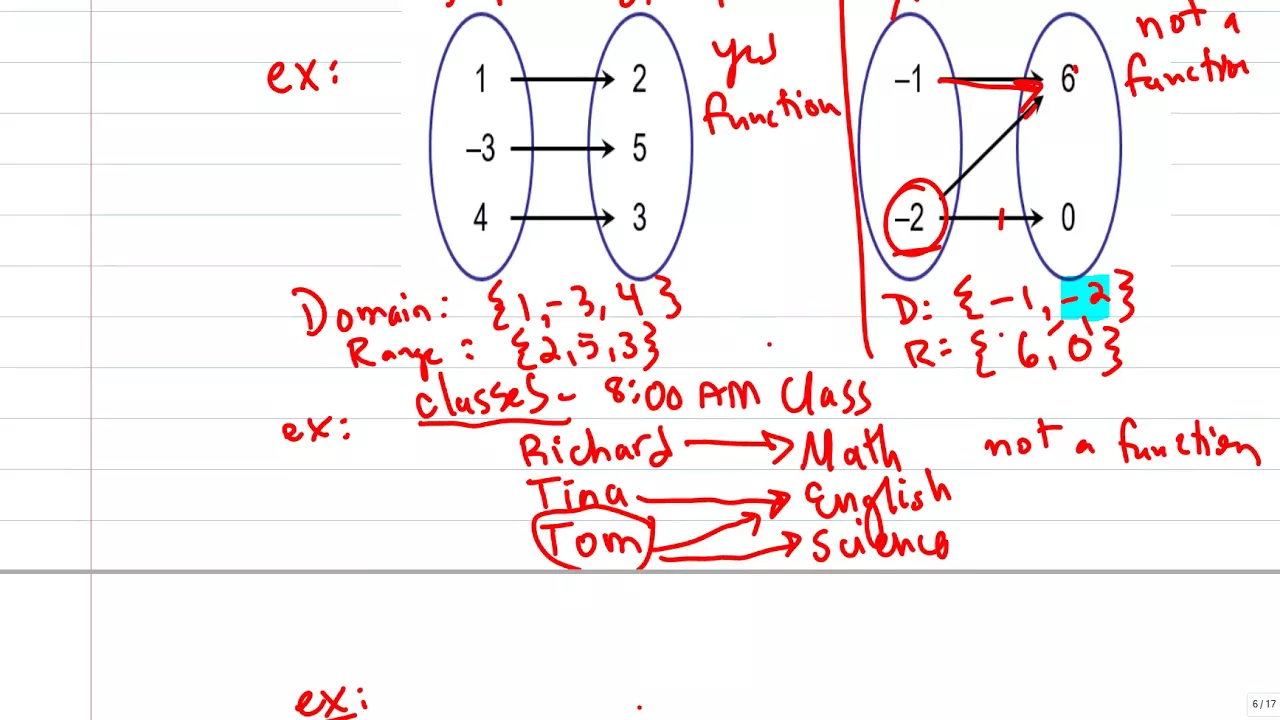 ex:
1 2
-3 5
4 3
yes
function
–1 6
–2 0
not a
function
Domain: {1, -3, 4}
Range: {2, 5, 3}
D: {-1, -2}
R= {6, 0}
classes - 8:00 AM Class
ex:
Richard Math
Tina English
Tom Science
not a function
ex:
6 / 17